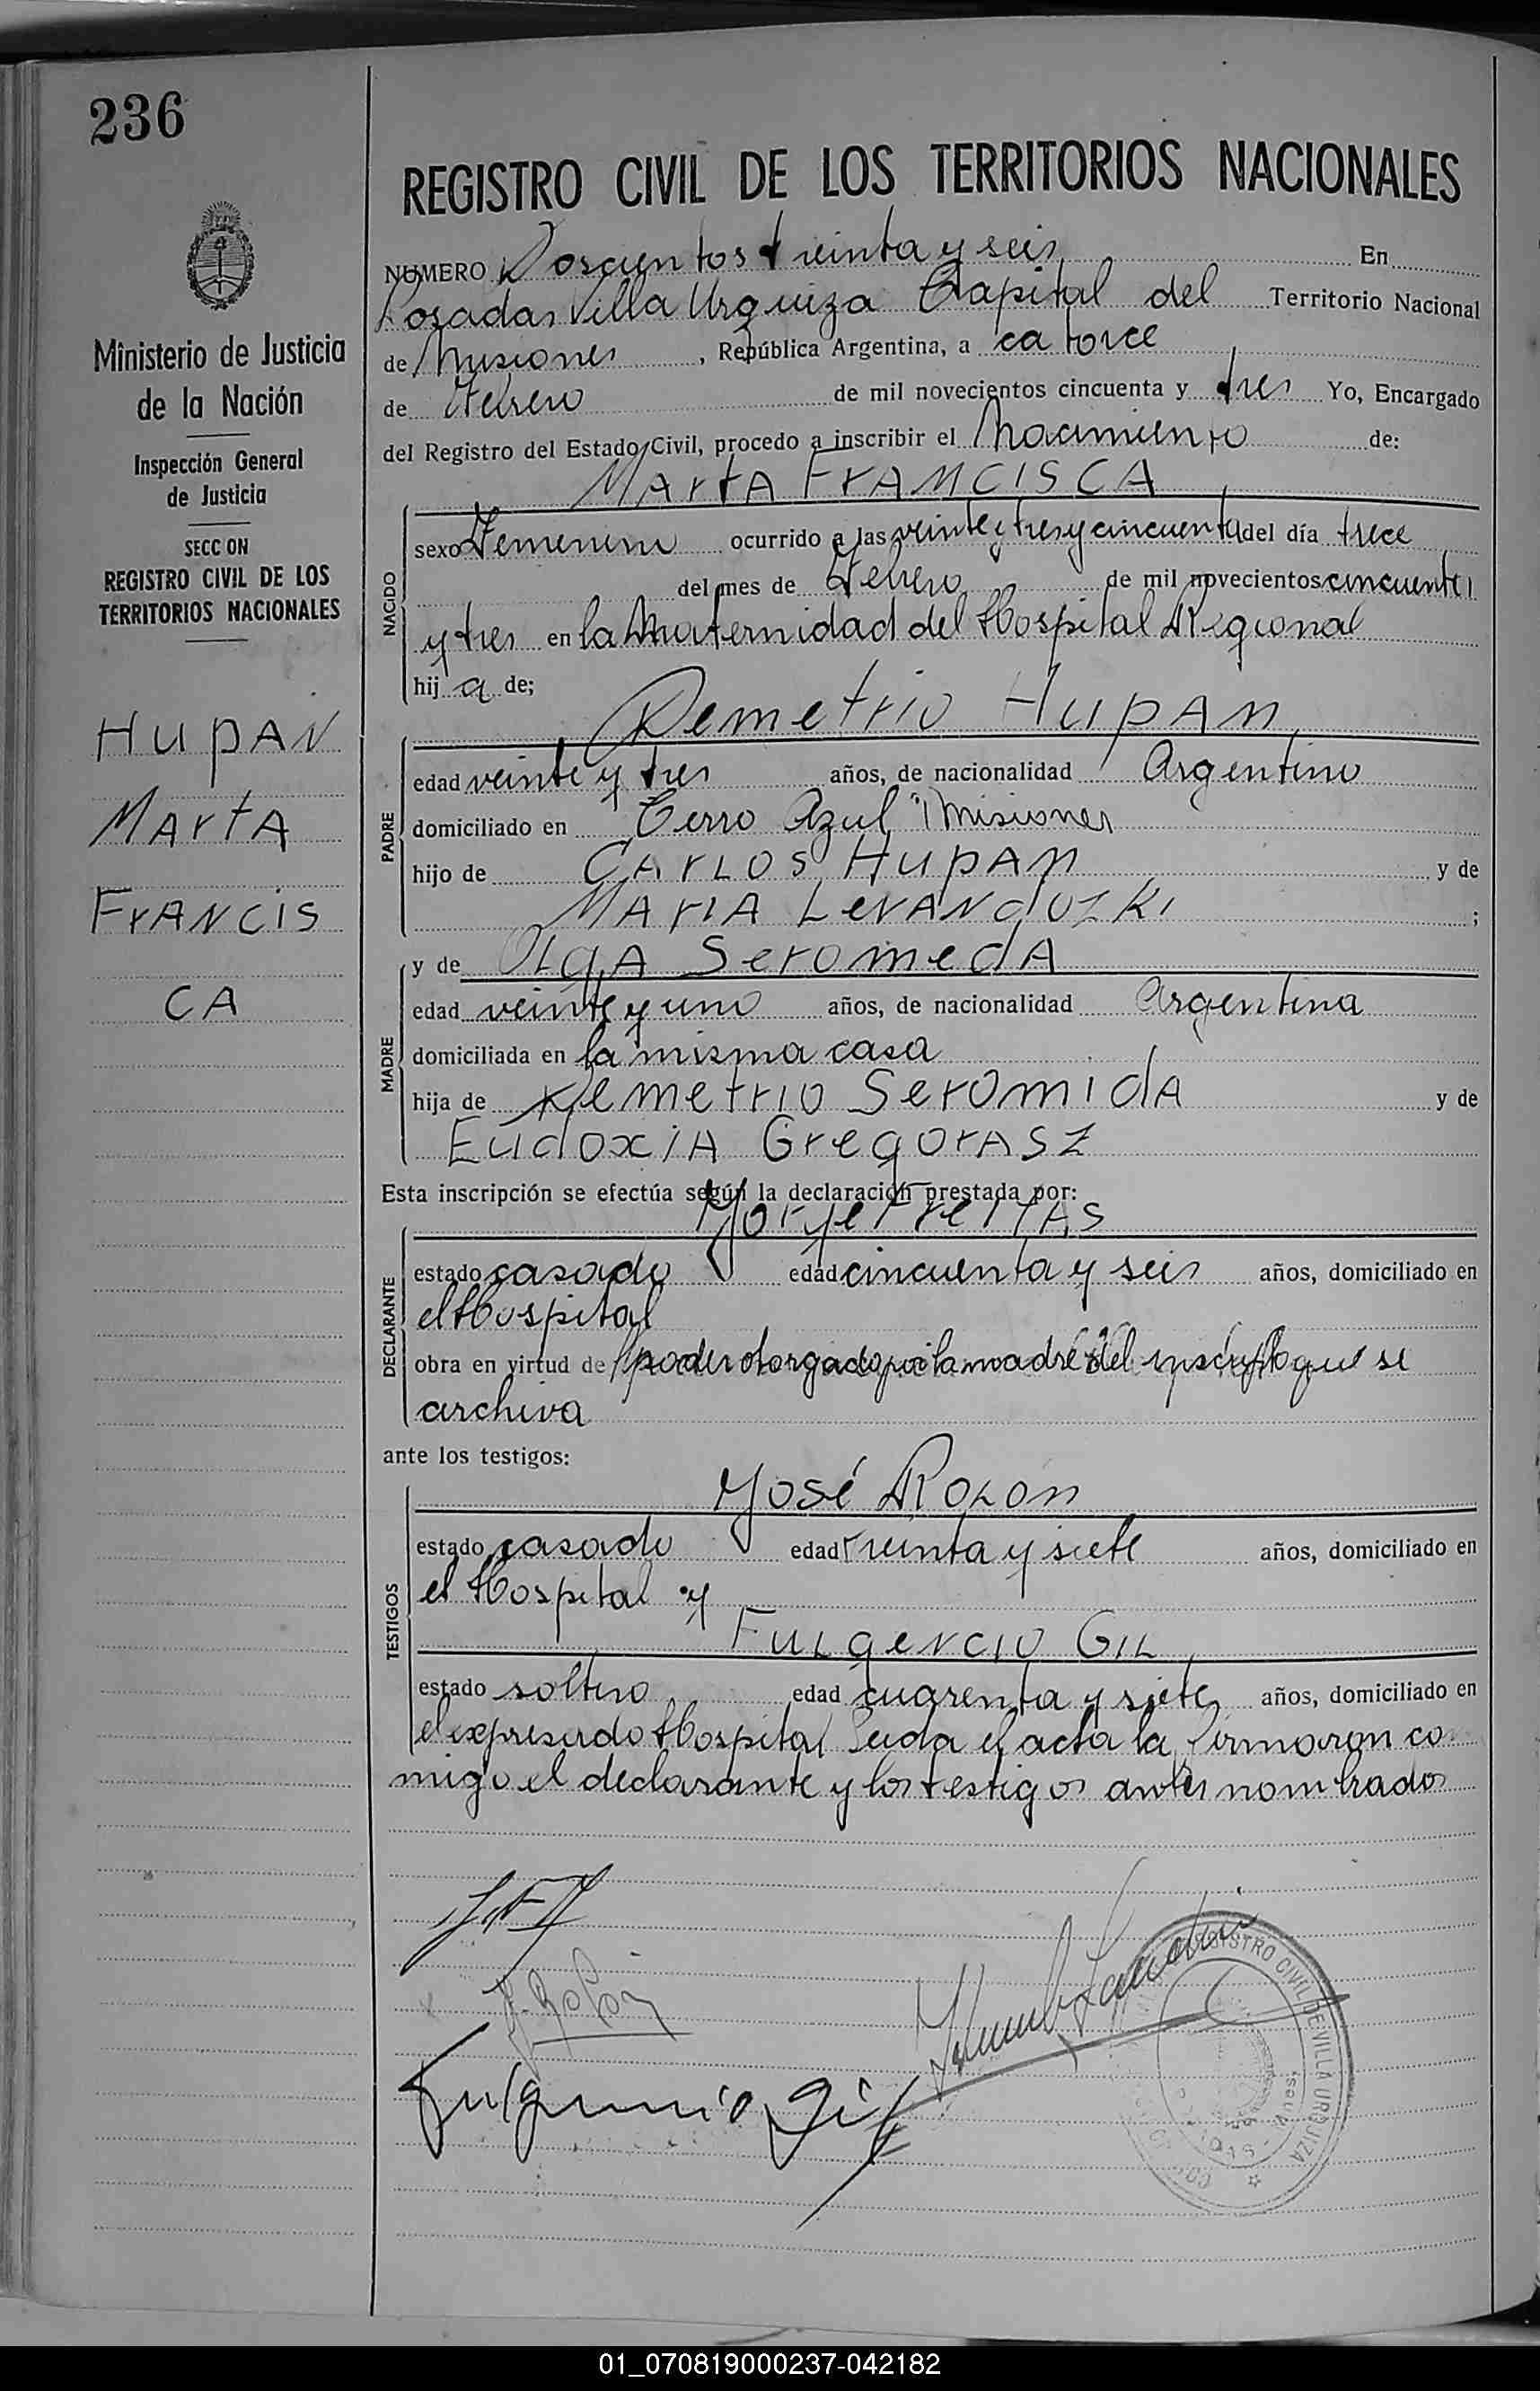 236
Ministerio de Justicia
de la Nación
Inspección General
de Justicia
SECCION
REGISTRO CIVIL DE LOS
TERRITORIOS NACIONALES
HUPAN
MArtA
FrANCIS
CA
REGISTRO CIVIL DE LOS TERRITORIOS NACIONALES
NUMERO Doscientos treinta y seis En
Posadas Villa Urquiza Capital del Territorio Nacional
de Misiones, República Argentina, a catorce
de Febrero de mil novecientos cincuenta y tres Yo, Encargado
del Registro del Estado Civil, procedo a inscribir el Nacimiento de:
MArtA FrANCISCA
NACIDO
sexo Femenino ocurrido a las veinte y tres y cincuenta del día trece
del mes de Febrero de mil novecientos cincuenta
y tres en la Maternidad del Hospital Regional
hija de;
Demetrio HupAn
PADRE
edad veinte y tres años, de nacionalidad Argentino
domiciliado en Cerro Azul Misiones
hijo de CArLOS HupAn y de
MArIA LevANdOSKi;
y de OLgA SeromedA
MADRE
edad veinte y uno años, de nacionalidad Argentina
domiciliada en la misma casa
hija de Demetrio SeromidA y de
EudoxiA GregorASZ
Esta inscripción se efectúa según la declaración prestada por:
Jorge FreitAS
DECLARANTE
estado casado edad cincuenta y seis años, domiciliado en
el Hospital
obra en virtud de poder otorgado por la madre del inscripto que se
archiva
ante los testigos:
José ROLOn
TESTIGOS
estado casado edad treinta y siete años, domiciliado en
el Hospital y
FuLgeNCIO GIL
estado soltero edad cuarenta y siete años, domiciliado en
el expresado Hospital Leida el acta la firmaron co
migo el declarante y los testigos antes nombrados
J. Rolon
Fulgencio Gil
REGISTRO CIVIL DE VILLA URQUIZA
01_070819000237-042182